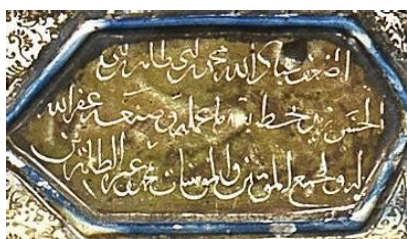 اضعف عباد الله محمد بن ابي طاهر بن ابي
الحسين بخط يده ما عمله و صنعه غفر الله
له و لجميع المؤمنين و المؤمنات بمحمد و عترته الطاهرين